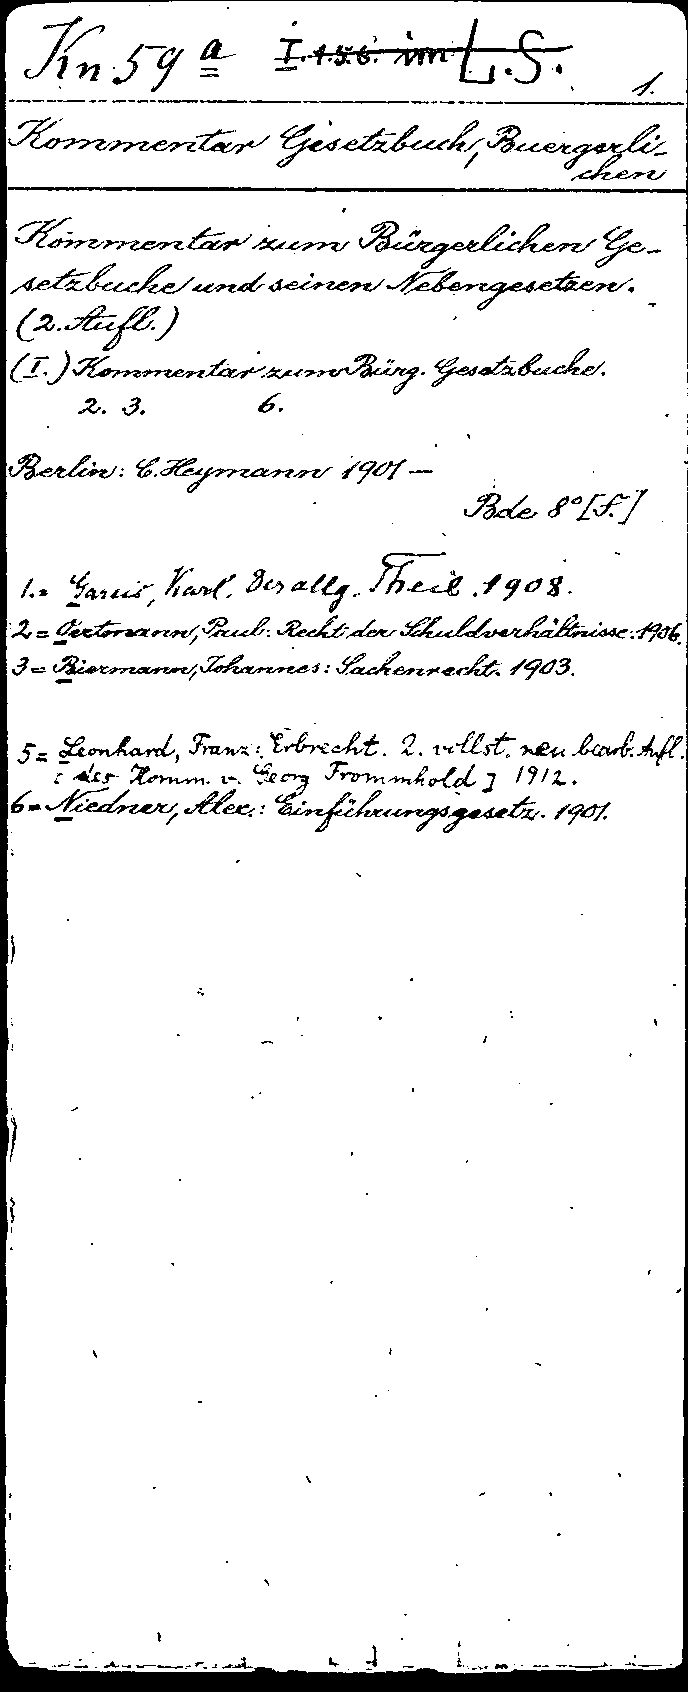 Kn 59 a I. 1.5.6. im L.S.
1.
Kommentar Gesetzbuch, Buergerli-
chen
Kommentar zum Bürgerlichen Ge-
setzbuche und seinen Nebengesetzen.
(2. Aufl.)
(I.) Kommentar zum Bürg. Gesetzbuche.
2. 3. 6.
Berlin: C. Heymann 1901 —
Bde 8° [f.]
1.= Gareis, Karl. Der allg. Theil. 1908.
2 = Oertmann, Paul: Recht der Schuldverhältnisse. 1906.
3 = Biermann, Johannes: Sachenrecht. 1903.
5 = Leonhard, Franz: Erbrecht. 2. vollst. neu bearb. Aufl.
[ des Komm. v. Georg Frommhold ] 1912.
6 = Niedner, Alex.: Einführungsgesetz. 1901.